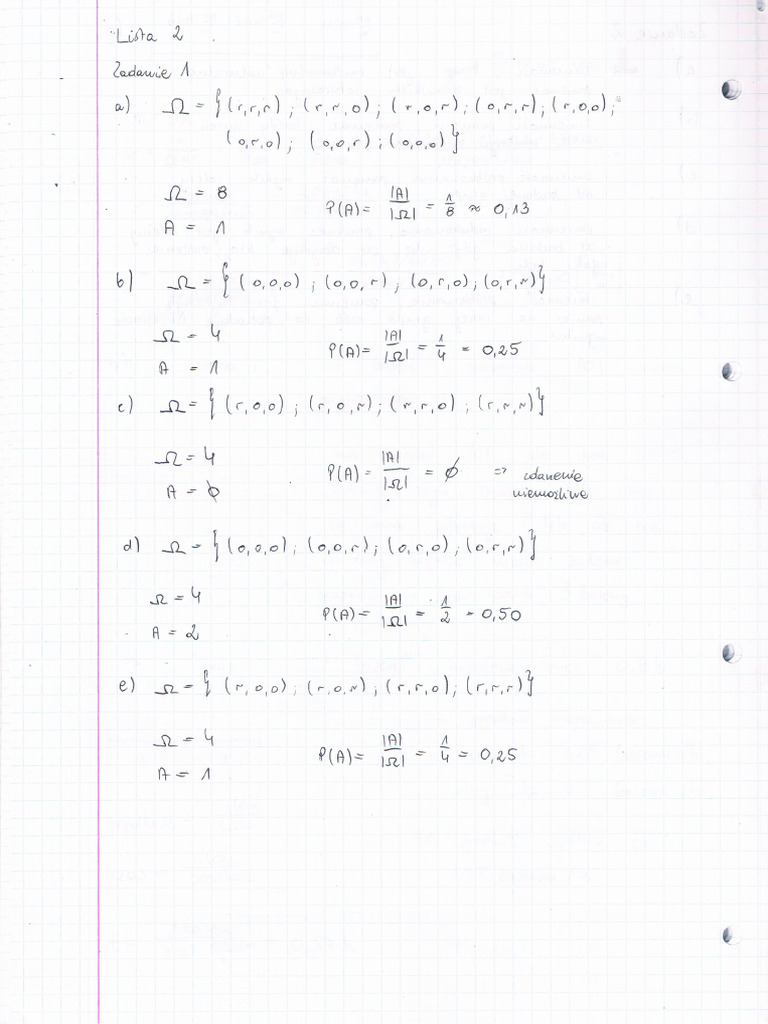 Lista 2
Zadanie 1
a) Ω = {(r,r,r) ; (r,r,o) ; (r,o,r) ; (o,r,r) ; (r,o,o) ;
(o,r,o) ; (o,o,r) ; (o,o,o)}
Ω = 8 P(A) = |A|/|Ω| = 1/8 ≈ 0,13
A = 1
b) Ω = {(o,o,o) ; (o,o,r) ; (o,r,o) ; (o,r,r)}
Ω = 4 P(A) = |A|/|Ω| = 1/4 = 0,25
A = 1
c) Ω = {(r,o,o) ; (r,o,r) ; (r,r,o) ; (r,r,r)}
Ω = 4 P(A) = |A|/|Ω| = ∅ => zdarzenie
A = ∅ niemożliwe
d) Ω = {(o,o,o) ; (o,o,r) ; (o,r,o) ; (o,r,r)}
Ω = 4 P(A) = |A|/|Ω| = 1/2 = 0,50
A = 2
e) Ω = {(r,o,o) ; (r,o,r) ; (r,r,o) ; (r,r,r)}
Ω = 4 P(A) = |A|/|Ω| = 1/4 = 0,25
A = 1